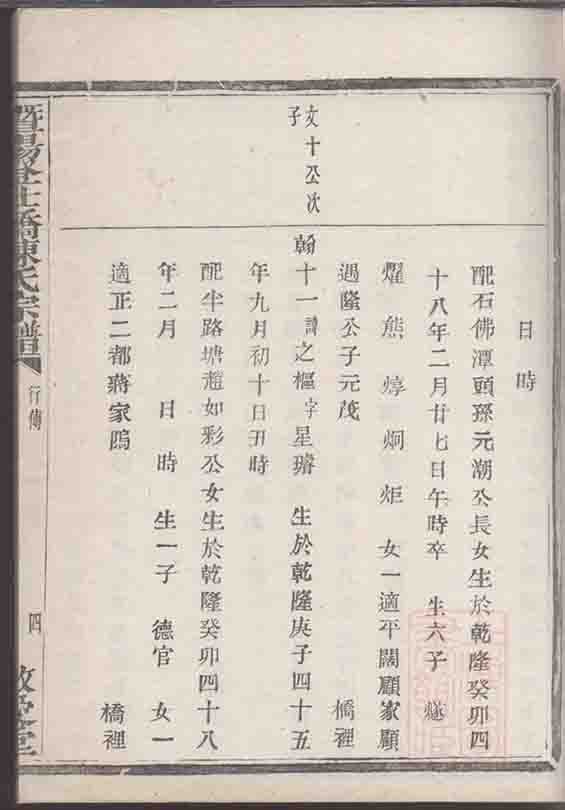 日　時
配石佛潭頭孫元潮公長女生於乾隆癸卯四
十八年二月廿七日午時卒　生六子　燧
燿　熊　焞　炯　炬　女一適平闊顧家顧
遇隆公子元茂　橋裡
文十公次
子
翰十一諱之樞字星璿　生於乾隆庚子四十五
年九月初十日丑時
配半路塘趙如彩公女生於乾隆癸卯四十八
年二月　日　時　生一子　德官　女一
適正二都蔣家塢　橋裡
暨陽 橋陳氏宗譜
行傳
四